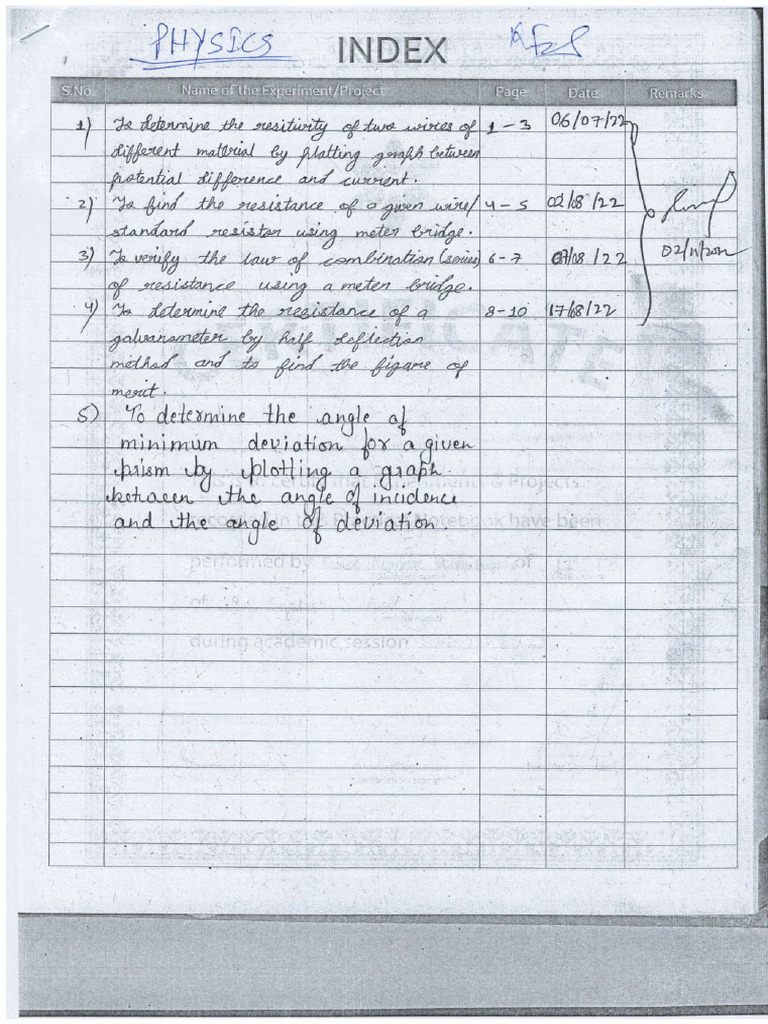 PHYSICS INDEX
S.No. Name of the Experiment/Project Page Date Remarks
1) To determine the resitivity of two wires of 1-3 06/07/22
different material by platting graph between
potential difference and current.
2) To find the resistance of a given wire/ 4-5 02/08/22
standard resistor using meter bridge.
02/11/2022
3) To verify the law of combination (series) 6-7 /08/22
of resistance using a meter bridge.
4) To determine the resistance of a 8-10 17/08/22
galvanometer by half deflection
method and to find the figure of
merit.
5) To determine the angle of
minimum deviation for a given
prism by plotting a graph
between the angle of incidence
and the angle of deviation.
performed by of
during academic session